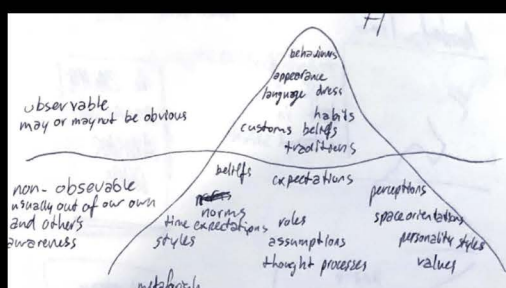 behaviours
appearance
language dress
observable
may or may not be obvious
habits
customs beliefs
traditions
non-obsevable
usually out of our own
and others
awareness
beliefs
expectations
perceptions
norms
time expectations
roles
space orientations
styles
assumptions
personality styles
thought processes
values